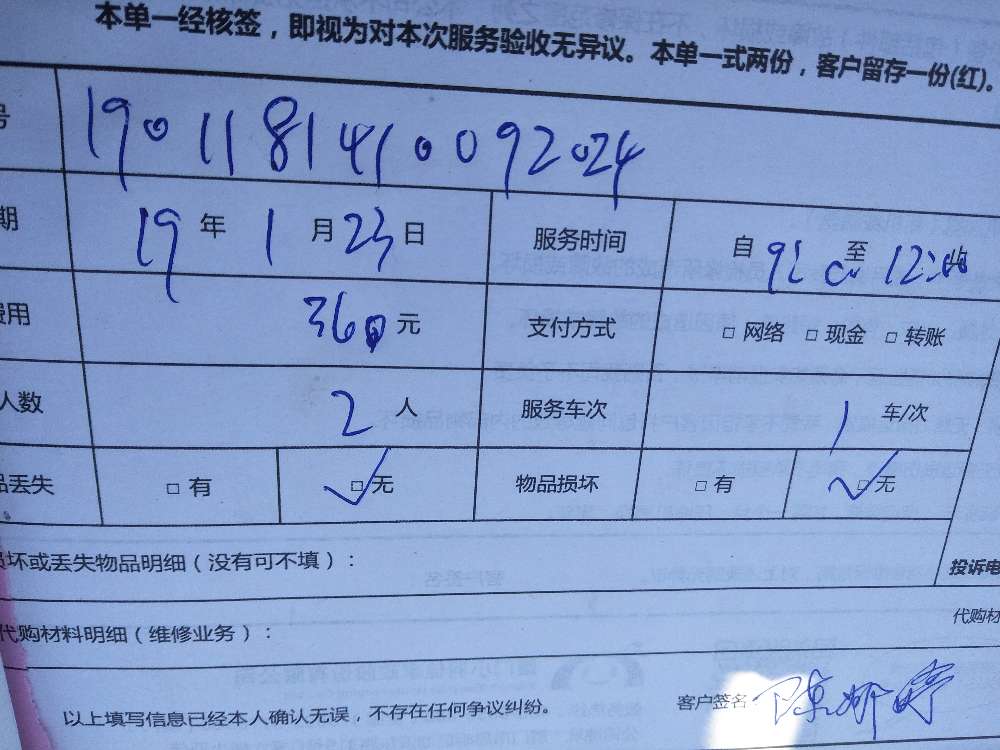 本单一经核签，即视为对本次服务验收无异议。本单一式两份，客户留存一份(红)。
号 1901181410092024
期 19年1月23日 服务时间 自 至12:00
费用 360元 支付方式 □ 网络 □ 现金 □ 转账
人数 2人 服务车次 1 车/次
品丢失 □ 有 □ 无 物品损坏 □ 有 □ 无
损坏或丢失物品明细（没有可不填）：
投诉电
代购材料明细（维修业务）：
代购材
以上填写信息已经本人确认无误，不存在任何争议纠纷。
客户签名